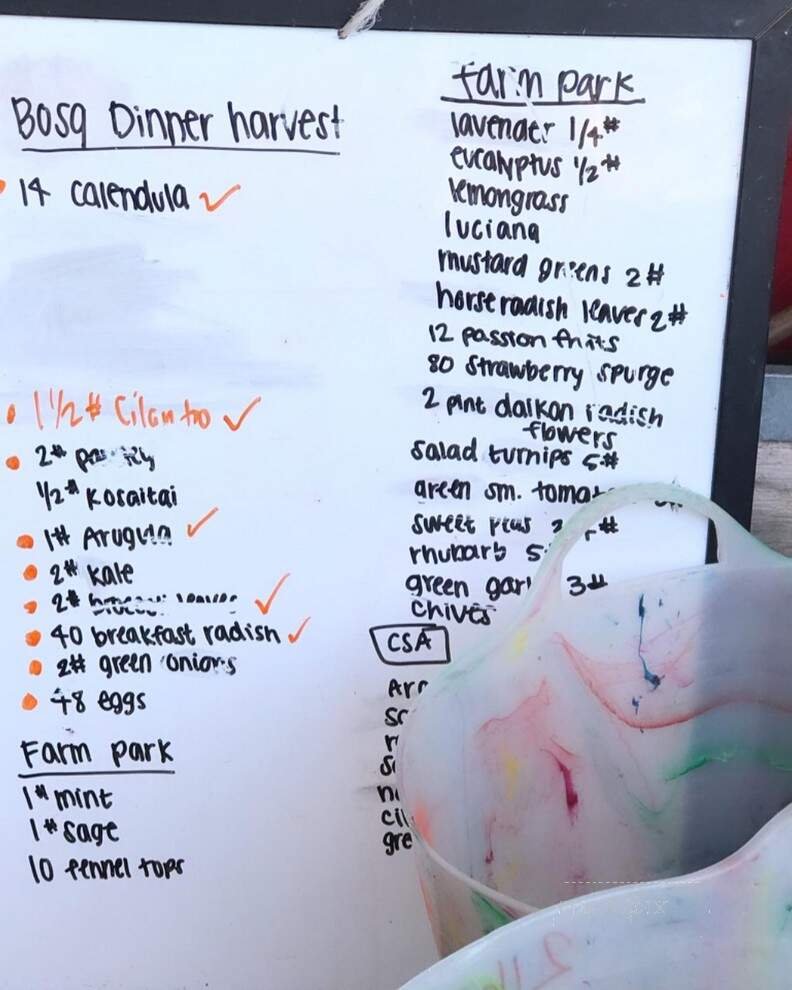 Bosq Dinner harvest
14 Calendula ✓
1 1/2# Cilantro ✓
2# parsley
1/2# Kosaitai
1# Arugula ✓
2# kale
2# leaves ✓
40 breakfast radish ✓
2# green onions
48 eggs
Farm park
1# mint
1# sage
10 fennel tops
Farm park
lavender 1/4#
eucalyptus 1/2#
lemongrass
luciana
mustard greens 2#
horseradish leaves 2#
12 passion fruits
80 strawberry spurge
2 pint daikon radish
flowers
salad turnips 5#
green sm.
sweet peas
rhubarb 5
green 3#
chives
CSA